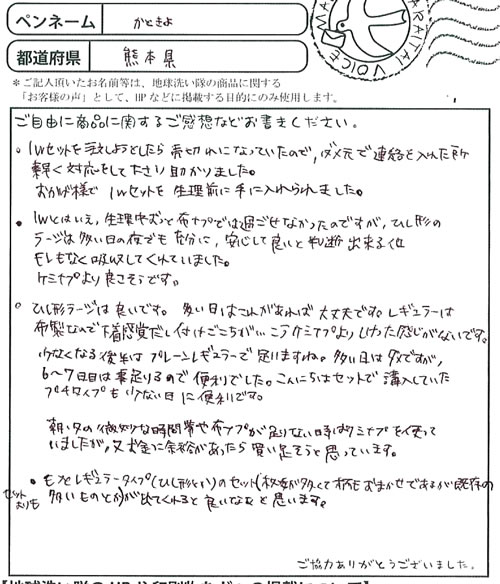 ペンネーム かときよ
都道府県 熊本県
VOICE
ARAITAI
＊ご記入頂いたお名前等は、地球洗い隊の商品に関する
「お客様の声」として、HPなどに掲載する目的にのみ使用します。
ご自由に商品に関するご感想などお書きください。
。1wセットを注文しようとしたら売切れになっていたので、ダメ元で連絡を入れた所
軽く対応をして下さり助かりました。
おかげ様で 1wセットを生理前に手に入れられました。
。1wとはいえ、生理中ずっと布ナプでは過ごせなかったのですが、ひし形の
ラージは多い日の夜でも充分に、安心して良いと判断出来る位
モレもなく吸収してくれていました。
ケミナプより良さそうです。
。ひし形ラージは良いです。多い日はこれがあれば大丈夫です。レギュラーは
布製なので下着感覚だし付けごこちがいい
少なくなる後半はプレーンレギュラーで足りますね。多い日はダメですが、
6〜7日目は事足りるので便利でした。こんにちはセットで購入していた
プチタイプも少ない日に便利です。
朝・夕の微妙な時間帯や布ナプが足りない時はケミナプを使って
いましたが、又お金に余裕があったら買い足そうと思っています。
。もっとレギュラータイプ(ひし形とか)のセット(枚数が多くて柄もおまかせであるが既存の
セットよりも 多いものとか)が出てくれると良いなぁと思います。
ご協力ありがとうございました。